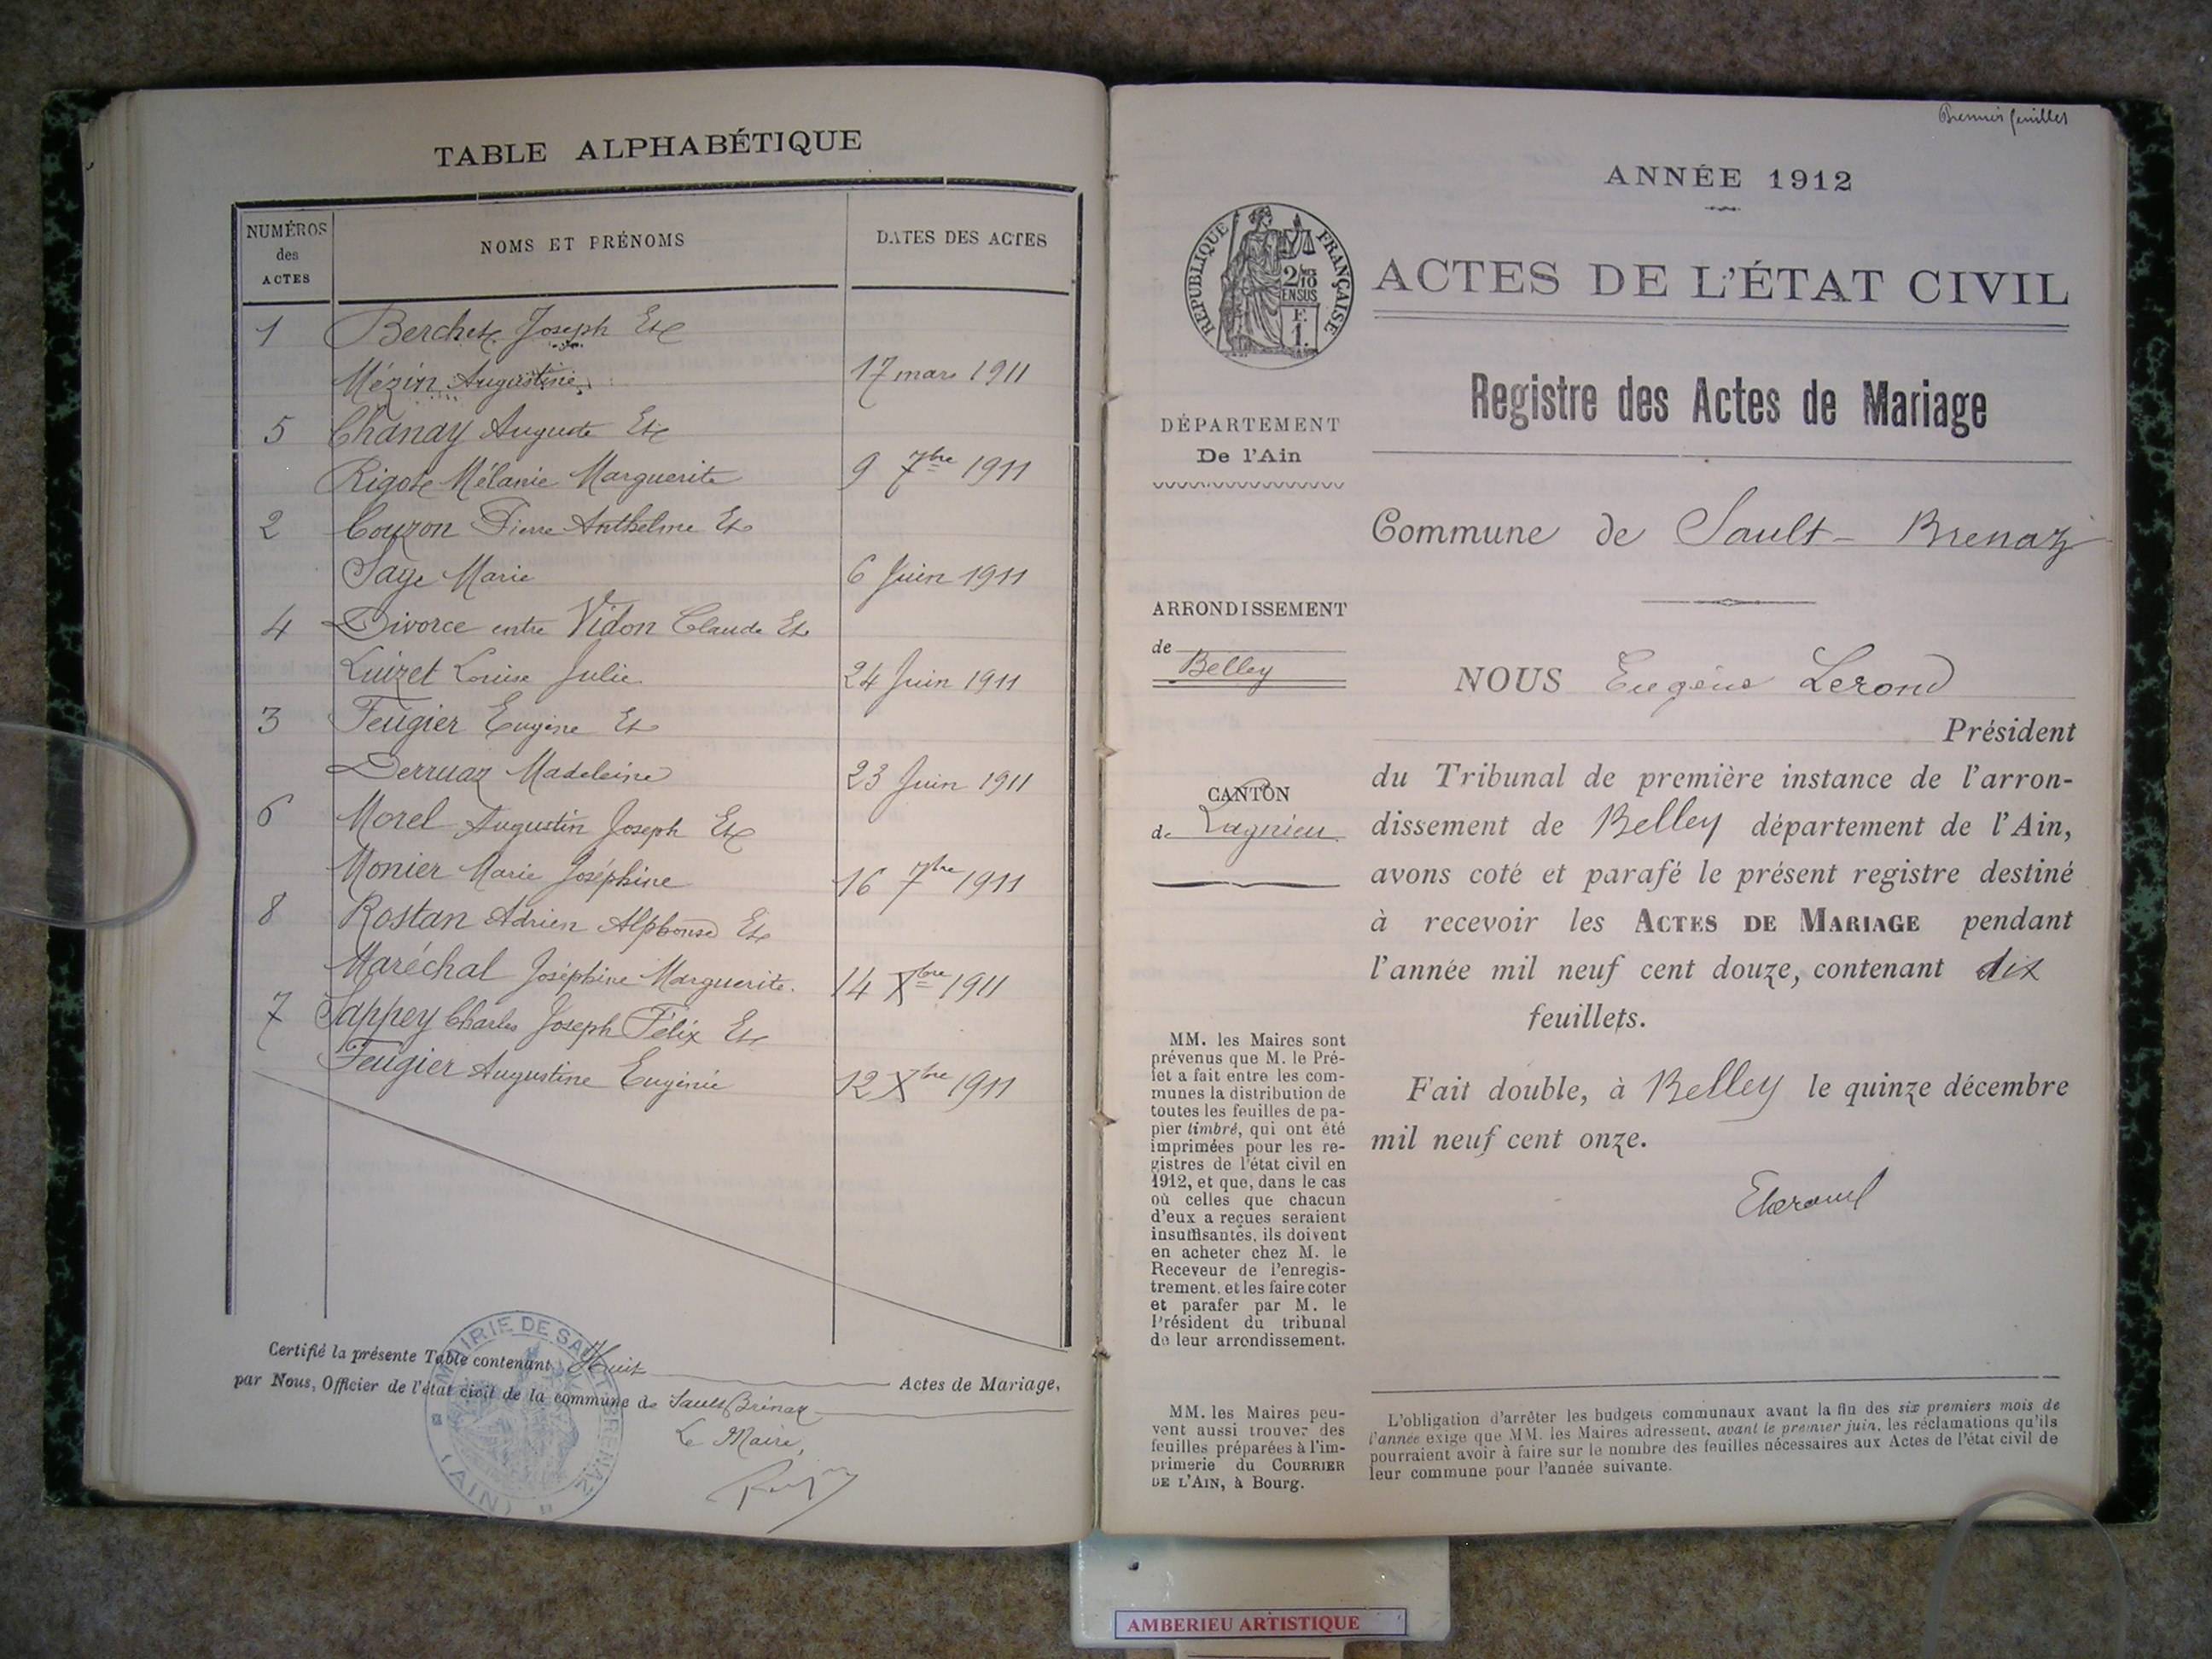 TABLE ALPHABÉTIQUE
NUMÉROS
des
ACTES
NOMS ET PRÉNOMS
DATES DES ACTES
1 Berchet Joseph Et
Mézin Augustine 17 mars 1911
5 Chanay Auguste Et
Rigot Mélanie Marguerite 9 7bre 1911
2 Couzon Pierre Anthelme Et
Sage Marie 6 Juin 1911
4 Divorce entre Vidon Claude Et
Luizet Louise Julie 24 Juin 1911
3 Feugier Eugène Et
Derruaz Madeleine 23 Juin 1911
6 Morel Augustin Joseph Et
Monier Marie Joséphine 16 7bre 1911
8 Rostan Adrien Alphonse Et
Maréchal Joséphine Marguerite. 14 Xbre 1911
7 Tappey Charles Joseph Félix Et
Feugier Augustine Eugénie 12 Xbre 1911
Certifié la présente Table contenant Huit Actes de Mariage,
par Nous, Officier de l'état civil de la commune de Sault-Brénaz
Le Maire,
MAIRIE DE SAULT-BRENAZ
(AIN)
Premier feuillet
ANNÉE 1912
RÉPUBLIQUE FRANÇAISE
2/10
EN SUS
F.
1.
ACTES DE L'ÉTAT CIVIL
Registre des Actes de Mariage
DÉPARTEMENT
De l'Ain
Commune de Sault-Brenaz
ARRONDISSEMENT
de Belley
CANTON
de Lagnieu
NOUS Eugène Lerond
Président
du Tribunal de première instance de l'arron-
dissement de Belley département de l'Ain,
avons coté et parafé le présent registre destiné
à recevoir les ACTES DE MARIAGE pendant
l'année mil neuf cent douze, contenant dix
feuillets.
Fait double, à Belley le quinze décembre
mil neuf cent onze.
MM. les Maires sont
prévenus que M. le Pré-
fet a fait entre les com-
munes la distribution de
toutes les feuilles de pa-
pier timbré, qui ont été
imprimées pour les re-
gistres de l'état civil en
1912, et que, dans le cas
où celles que chacun
d'eux a reçues seraient
insuffisantes, ils doivent
en acheter chez M. le
Receveur de l'enregis-
trement, et les faire coter
et parafer par M. le
Président du tribunal
de leur arrondissement.
MM. les Maires peu-
vent aussi trouver des
feuilles préparées à l'im-
primerie du COURRIER
DE L'AIN, à Bourg.
L'obligation d'arrêter les budgets communaux avant la fin des six premiers mois de
l'année exige que MM. les Maires adressent, avant le premier juin, les réclamations qu'ils
pourraient avoir à faire sur le nombre des feuilles nécessaires aux Actes de l'état civil de
leur commune pour l'année suivante.
AMBERIEU ARTISTIQUE